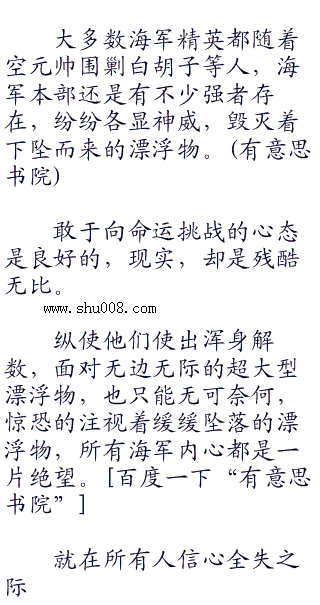 大多数海军精英都随着
空元帅围剿白胡子等人，海
军本部还是有不少强者存
在，纷纷各显神威，毁灭着
下坠而来的漂浮物。(有意思
书院)
敢于向命运挑战的心态
是良好的，现实，却是残酷
无比。
www.shu008.com
纵使他们使出浑身解
数，面对无边无际的超大型
漂浮物，也只能无可奈何，
惊恐的注视着缓缓坠落的漂
浮物，所有海军内心都是一
片绝望。[百度一下“有意思
书院”]
就在所有人信心全失之
际